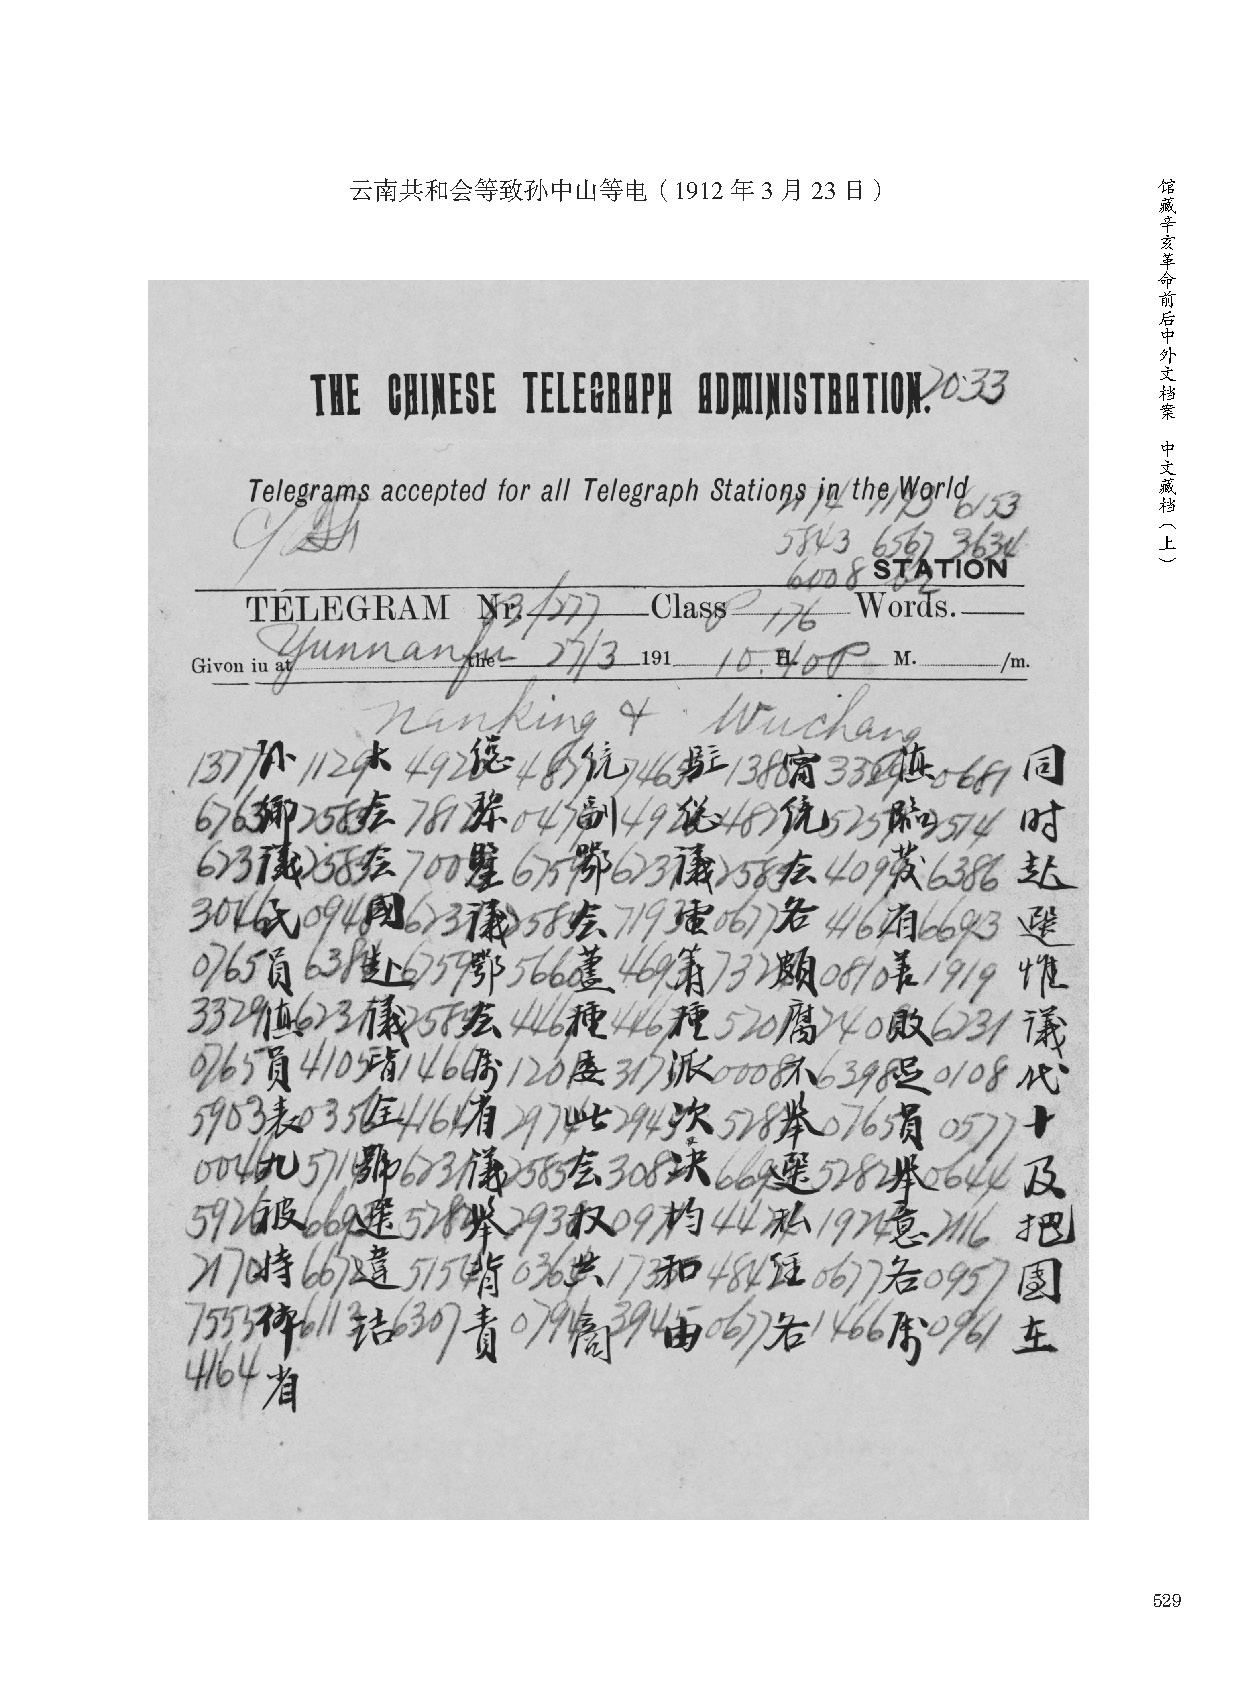 云南共和会等致孙中山等电（1912 年 3 月 23 日）
馆藏辛亥革命前后中外文档案 中文藏档（上）
THE CHINESE TELEGRAPH ADMINISTRATION.
2033
Telegrams accepted for all Telegraph Stations in the World
1193 6153
5843 6567 3634
6008
STATION
TELEGRAM Nr. /277 Class P 176 Words.
Givon iu at Yunnanfu the 27/3 191 10.40 P H. M. /m.
Nanking & Wuchang
1377 孙 1129 大 492 總 487 统 7465 駐 1380 甯 3329 滇 0681 同
6763 鄉 2585 会 7812 黎 0479 副 4920 總 4827 统 5259 臨 2514 时
6231 議 2585 会 700 鑒 6759 鄂 6231 議 2585 会 4099 发 6386 赴
3046 民 0948 國 6231 議 2585 会 7193 電 0677 各 4164 省 6693 選
0765 員 6384 赴 6759 鄂 5660 蘆 469 籌 732 頗 0810 善 1919 惟
3329 滇 6231 議 2585 会 446 種 446 種 520 腐 2408 敗 6231 議
0765 員 4105 皆 1466 属 120 委 317 派 0008 不 6398 足 0108 代
5903 表 0356 全 4164 省 2974 此 2945 次 528 举 0765 員 0577 十
0046 九 5714 號 6231 議 2585 会 3082 决 669 選 5282 举 0644 及
5926 被 669 選 5282 举 2938 权 0971 均 4424 私 1924 意 2116 把
2170 持 6672 違 5154 背 0364 共 1735 和 4842 經 0677 各 0957 團
7555 体 6113 詰 6307 責 0794 商 3945 由 0677 各 1466 属 0961 在
4164 省
529